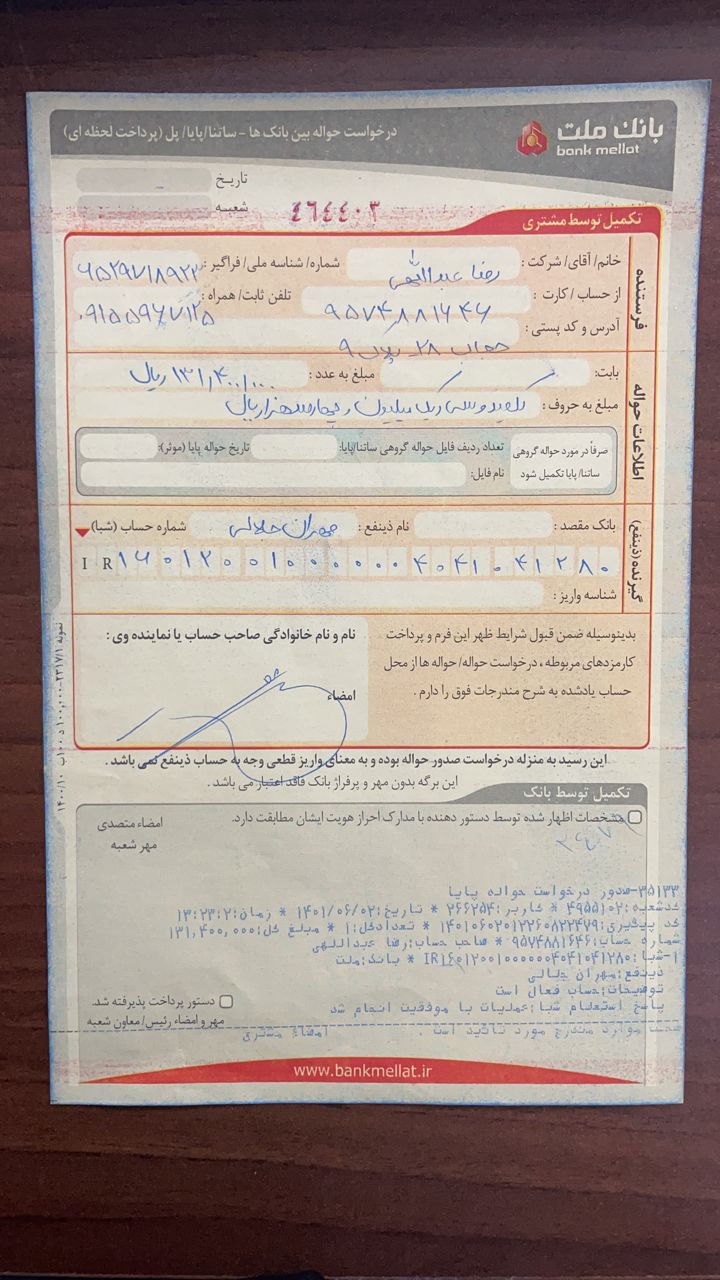 بانک ملت
bank mellat
درخواست حواله بین بانک ها - ساتنا/پایا/ پل (پرداخت لحظه ای)
تاریخ
شعبه
۴۶۴۴۰۳
تکمیل توسط مشتری
فرستنده
خانم/ آقای/ شرکت : رضا عبداللهی شماره/ شناسه ملی/ فراگیر :
از حساب / کارت : ۹۵۷۴۸۸۱۶۴۶ تلفن ثابت/ همراه : ۰۹۱۵۵۹۶۷۱۲۵
آدرس و کد پستی : حجاب ۲۸ پلاک ۹
اطلاعات حواله
بابت: مبلغ به عدد : ۱۳۱,۴۰۰,۰۰۰ ریال
مبلغ به حروف : یکصد و سی و یک میلیون و چهارصد هزار ریال
صرفاً در مورد حواله گروهی ساتنا/ پایا تکمیل شود
تعداد ردیف فایل حواله گروهی ساتنا/پایا: تاریخ حواله پایا (موثر):
نام فایل:
گیرنده (ذینفع)
بانک مقصد : نام ذینفع : مهران جلالی شماره حساب (شبا)
IR ۱۶۰۱۲۰۰۱۰۰۰۰۰۰۴۰۴۱۰۴۱۲۸۰
شناسه واریز :
بدینوسیله ضمن قبول شرایط ظهر این فرم و پرداخت
کارمزدهای مربوطه ، درخواست حواله/ حواله ها از محل
حساب یادشده به شرح مندرجات فوق را دارم .
نام و نام خانوادگی صاحب حساب یا نماینده وی :
امضاء
این رسید به منزله درخواست صدور حواله بوده و به معنای واریز قطعی وجه به حساب ذینفع نمی باشد .
این برگه بدون مهر و پرفراژ بانک فاقد اعتبار می باشد .
تکمیل توسط بانک
مشخصات اظهار شده توسط دستور دهنده با مدارک احراز هویت ایشان مطابقت دارد.
امضاء متصدی
مهر شعبه
۳۵۱۳۳-صدور درخواست حواله پایا
کدشعبه:۴۹۵۵۱۰۲ * کاربر:۲۶۶۲۵۴ * تاریخ:۱۴۰۱/۰۶/۰۲ * زمان:۱۳:۲۳:۲
کد پیگیری:۱۴۰۱۰۶۰۲۰۱۲۲۶۰۸۲۲۴۷۹ * تعدادکل:۱ * مبلغ کل:۱۳۱,۴۰۰,۰۰۰
شماره حساب:۹۵۷۴۸۸۱۶۴۶ * صاحب حساب:رضا عبداللهی
۱-شبا:IR۱۶۰۱۲۰۰۱۰۰۰۰۰۰۴۰۴۱۰۴۱۲۸۰ * بانک:ملت
ذینفع:مهران جلالی
توضیحات:حساب فعال است
پاسخ استعلام شبا:عملیات با موفقیت انجام شد
صحت موارد مندرج مورد تائید است . امضاء مشتری
دستور پرداخت پذیرفته شد.
مهر و امضاء رئیس/ معاون شعبه
www.bankmellat.ir